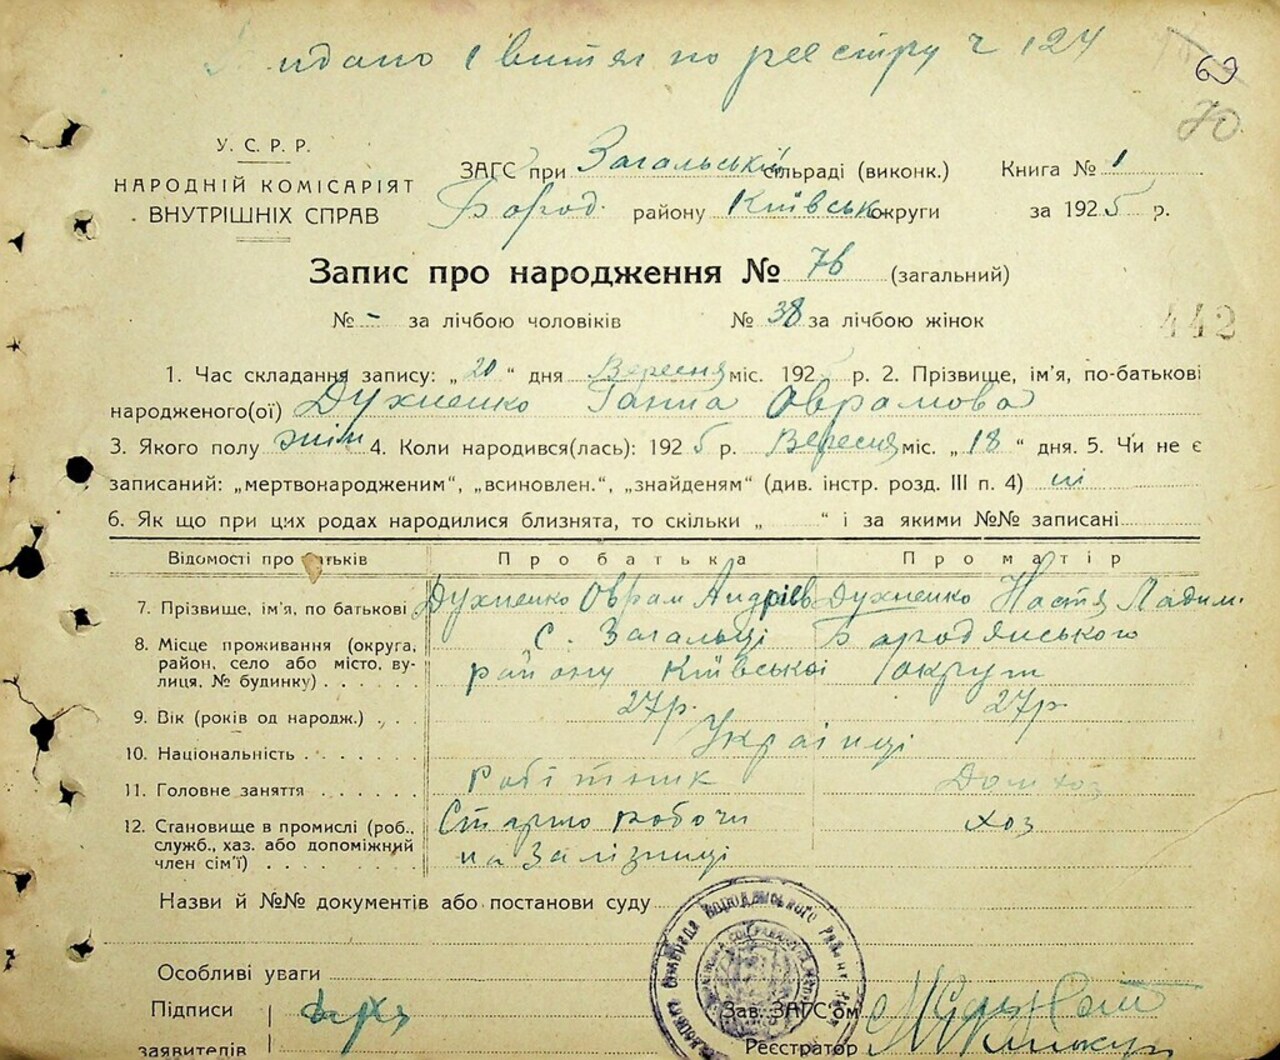 Видано 1 витяг по реєстру ч 124
69
70
У. С. Р. Р.
НАРОДНІЙ КОМІСАРІЯТ
ВНУТРІШНІХ СПРАВ
ЗАГС при Загальській сільраді (виконк.) Книга № 1
Бород. району Київськ округи за 1925 р.
Запис про народження № 76 (загальний)
№ - за лічбою чоловіків № 38 за лічбою жінок
442
1. Час складання запису: „20" дня Вересня міс. 1925 р. 2. Прізвище, ім'я, по-батькові
народженого(ої) Духненко Ганна Оврамова
3. Якого полу жін 4. Коли народився(лась): 1925 р. Вересня міс. „18" дня. 5. Чи не є
записаний: „мертвонародженим", „всиновлен.", „знайденям" (див. інстр. розд. III п. 4) ні
6. Як що при цих родах народилися близнята, то скільки „ " і за якими №№ записані
Відомості про батьків Про батька Про матір
7. Прізвище, ім'я, по батькові Духненко Оврам Андріев Духненко Настя Ладим.
8. Місце проживання (округа, район, село або місто, вулиця, № будинку) С. Загальці Бородянського
району Київської округи
9. Вік (років од народж.) 27р. 27р.
10. Національність Українці
11. Головне заняття робітник Домхоз
12. Становище в промислі (роб., служб., хаз. або допоміжний член сім'ї) Старшо робочи хоз
на Залізниці
Назви й №№ документів або постанови суду
Особливі уваги
Підписи
заявителів
Зав. ЗАГС'ом
Реєстратор